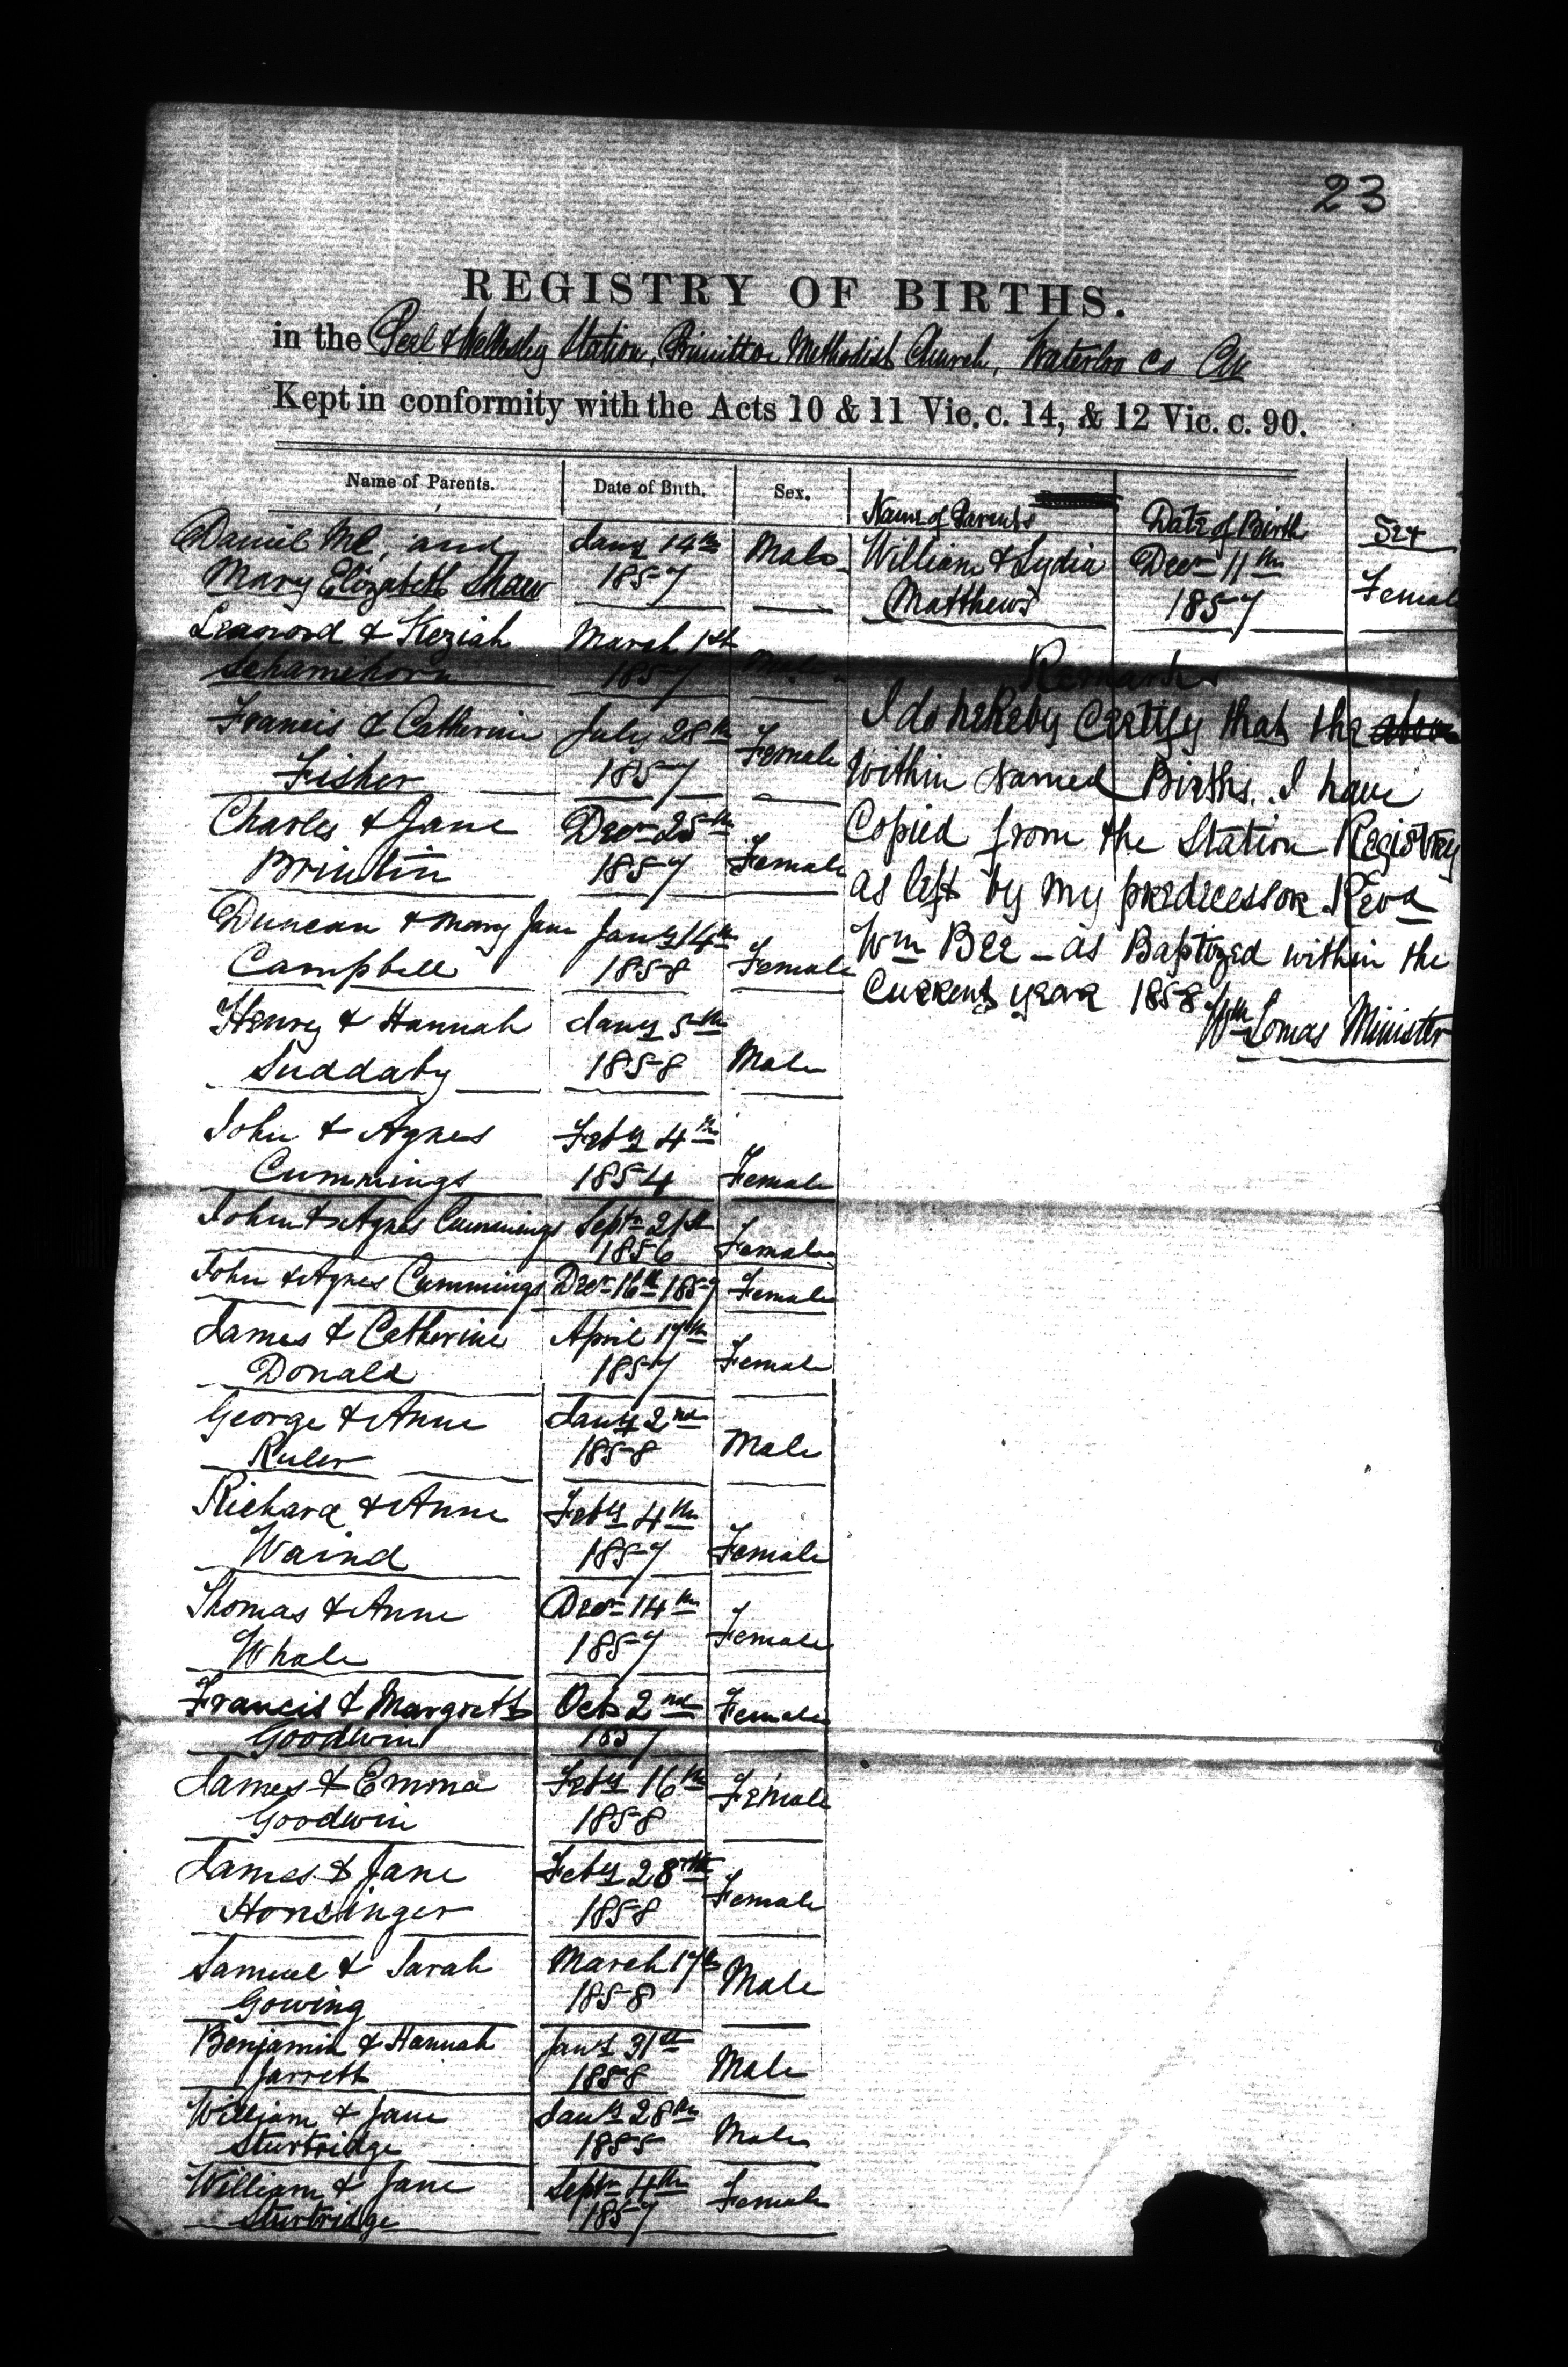 23
REGISTRY OF BIRTHS.
in the Peel & Wellesley Station, Primitive Methodist Church, Waterloo Co CW
Kept in conformity with the Acts 10 & 11 Vic. c. 14, & 12 Vic. c. 90.
Name of Parents. Date of Birth. Sex.
Daniel Mc, and Jany 14th Male
Mary Elizabeth Shaw 1857
Leanord & Keziah March 1st
Schamehorn 1857 Male
Francis & Catherine July 28th Female
Fisher 1857
Charles & Jane Decr 25th
Brintin 1857 Female
Duncan & Mary Jane Jany 14th
Campbell 1858 Female
Henry & Hannah Jany 5th
Suddaby 1858 Male
John & Agnes Feby 4th
Cummings 1854 Female
John & Agnes Cummings Septr 21st
1856 Female
John & Agnes Cummings Decr 16th 1857 Female
James & Catherine April 17th
Donald 1857 Female
George & Anne Jany 2nd
Ruler 1858 Male
Richard & Anne Feby 4th
Waind 1857 Female
Thomas & Anne Decr 14th
Whale 1857 Female
Francis & Margrett Oct 2nd Female
Goodwin 1857
James & Emma Feby 16th Female
Goodwin 1858
James & Jane Feby 28th
Honsinger 1858 Female
Samuel & Sarah March 17th Male
Gowing 1858
Benjamin & Hannah Jany 31st
Jarrett 1858 Male
William & Jane Jany 28th
Sturtridge 1855 Male
William & Jane Septr 4th Female
Sturtridge 1857
Name of Parents Date of Birth Sex
William & Lydia Decr 11th
Matthews 1857 Female
Remarks
I do hereby Certify that the above
within named Births. I have
Copied from the Station Registry
as left by my predecessor Revd
Wm Bee - as Baptized within the
Current year 1858
Wm Lomas Minister